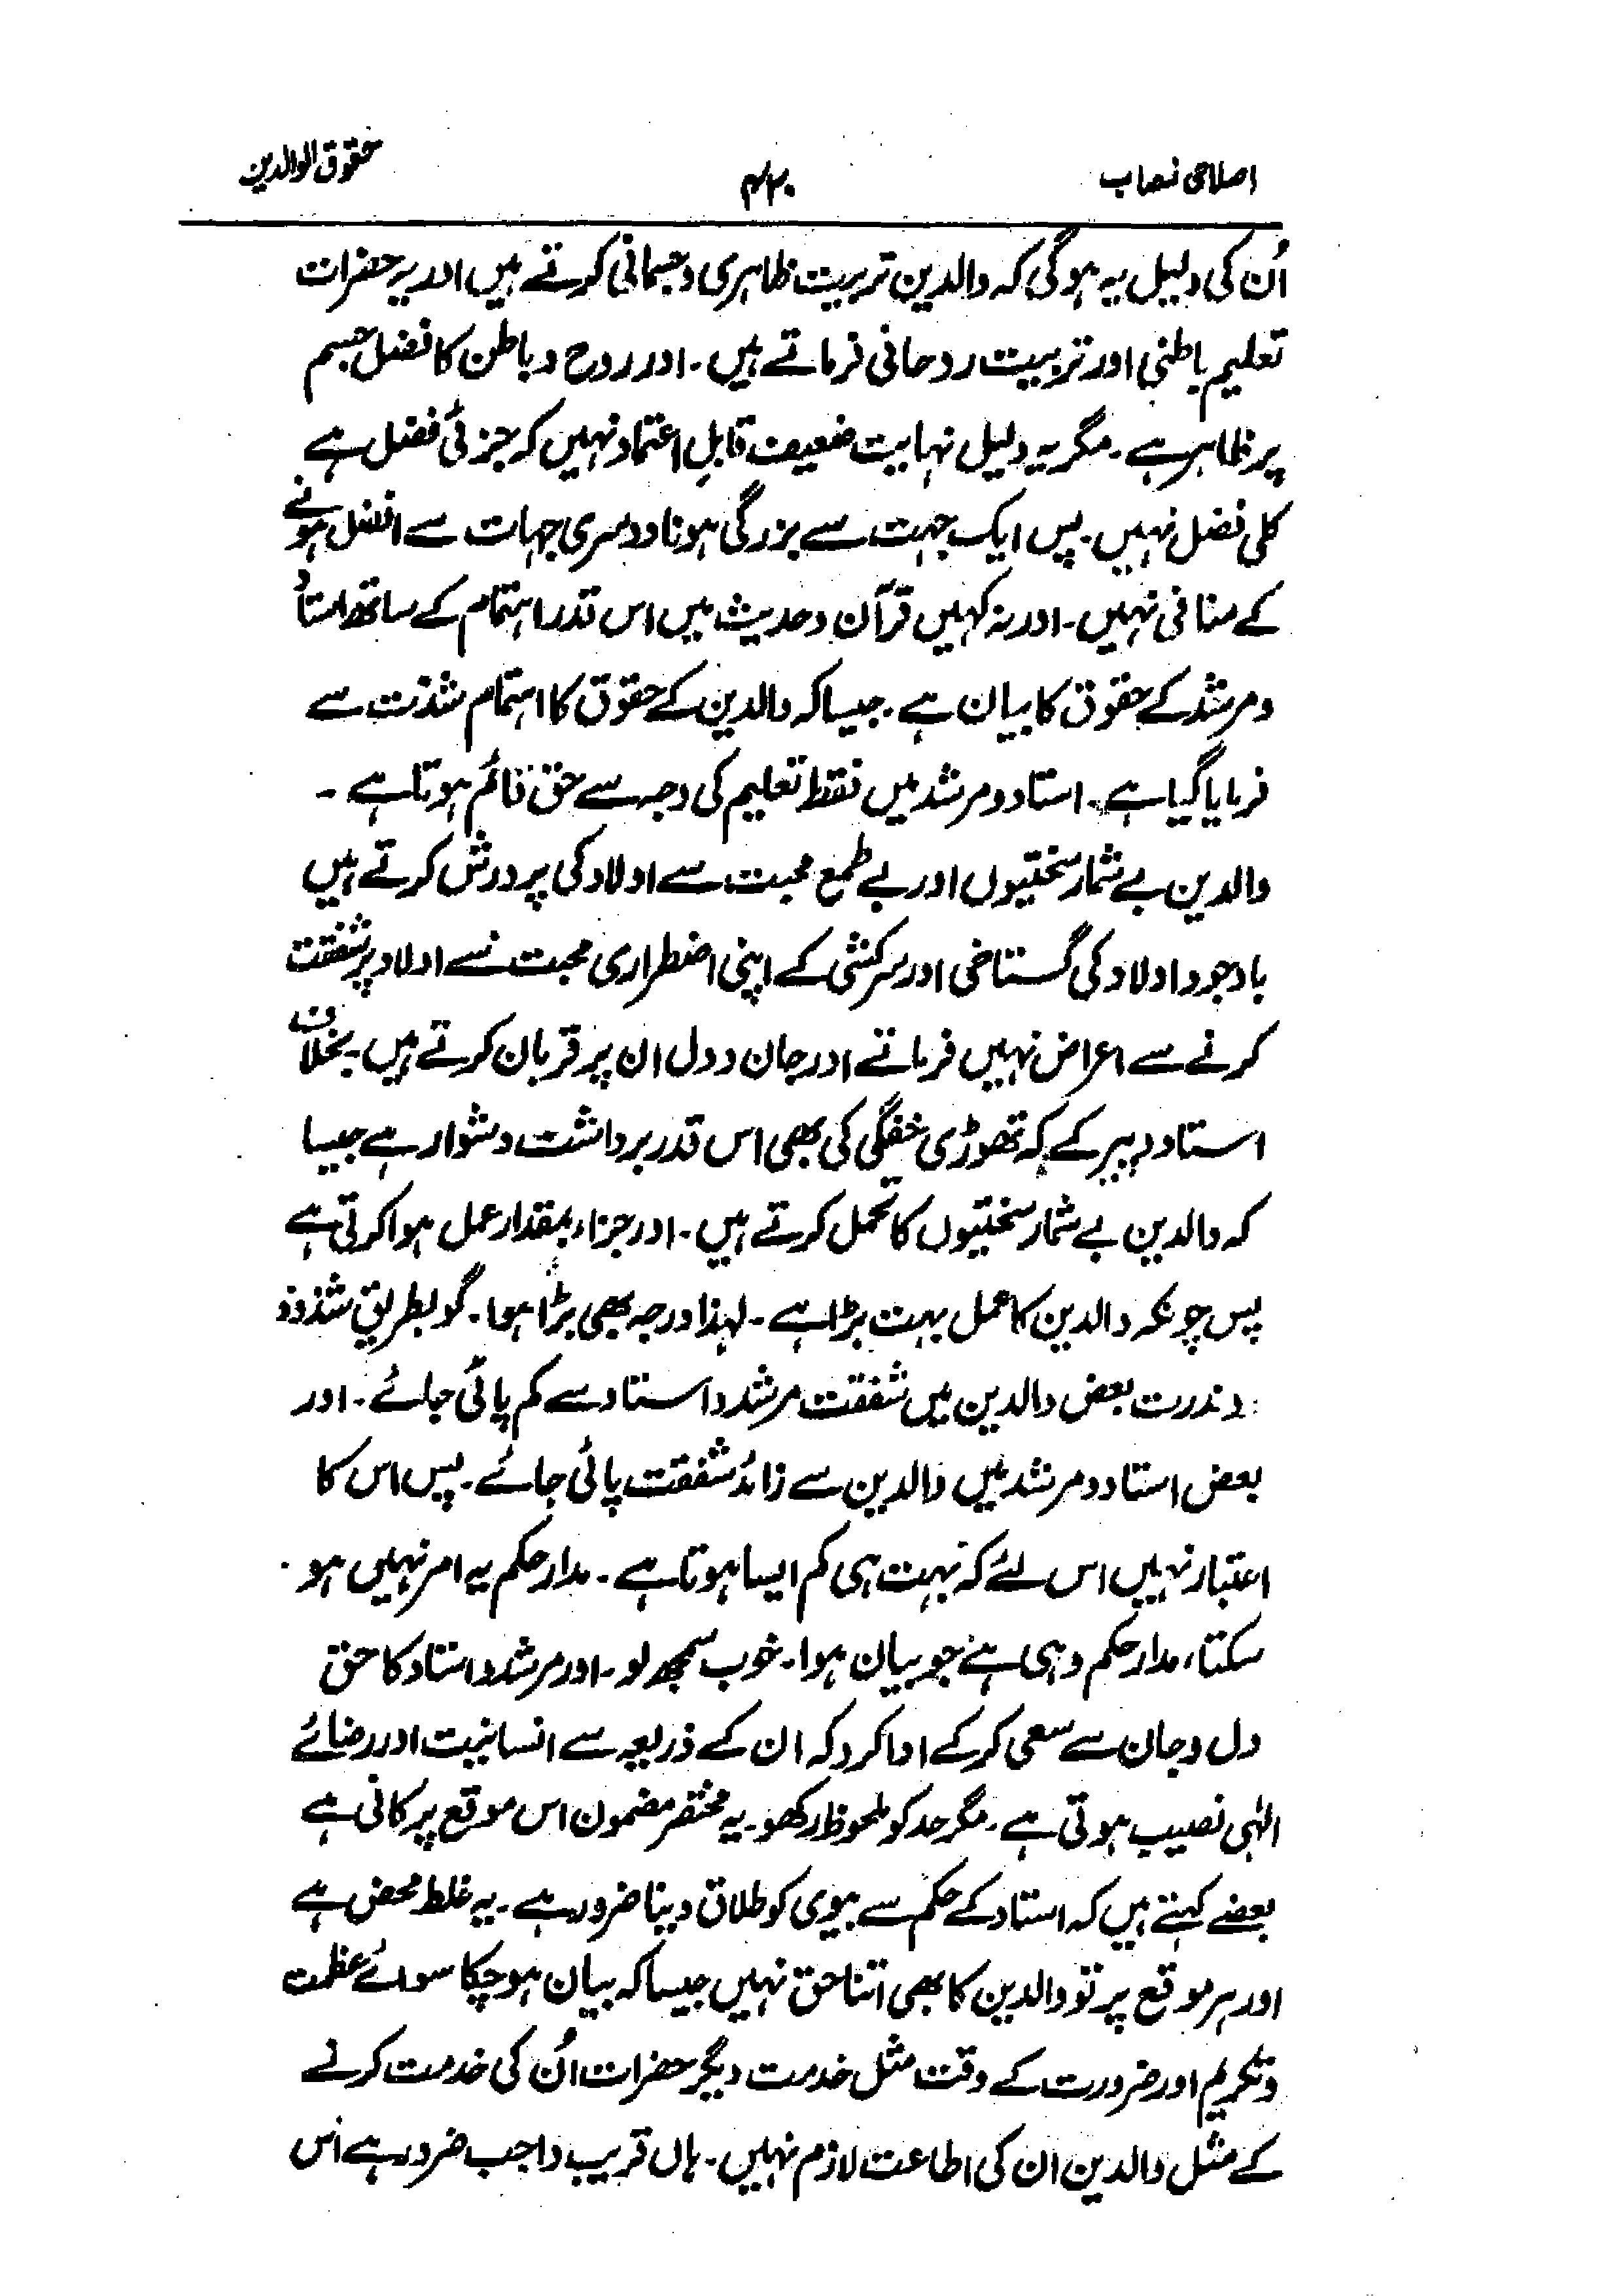 اصلاحی نصاب ۴۲۰ حقوق الوالدین
اُن کی دلیل یہ ہوگی کہ والدین تربیت ظاہری وجسمانی کرتے ہیں اور یہ حضرات
تعلیم باطنی اور تربیت روحانی فرماتے ہیں۔ اور روح و باطن کا فضل جسم
پر ظاہر ہے۔ مگر یہ دلیل نہایت ضعیف قابلِ اعتماد نہیں کہ جزئی فضل ہے
کلی فضل نہیں۔ پس ایک جہت سے بزرگی ہونا دوسری جہات سے افضل ہونے
کے منافی نہیں۔ اور نہ کہیں قرآن وحدیث میں اس قدر اہتمام کے ساتھ استاد
و مرشد کے حقوق کا بیان ہے۔ جیسا کہ والدین کے حقوق کا اہتمام شدّت سے
فرمایا گیا ہے۔ استاد و مرشد میں فقط تعلیم کی وجہ سے حق قائم ہوتا ہے۔
والدین بے شمار سختیوں اور بے طمع محبت سے اولاد کی پرورش کرتے ہیں
باوجود اولاد کی گستاخی اور سرکشی کے اپنی اضطراری محبت سے اولاد پر شفقت
کرنے سے اعراض نہیں فرماتے اور جان و دل ان پر قربان کرتے ہیں۔ بخلاف
استاد و پیر کے کہ تھوڑی خفگی کی بھی اس قدر برداشت دشوار ہے جیسا
کہ والدین بے شمار سختیوں کا تحمل کرتے ہیں۔ اور جزاء بمقدار عمل ہوا کرتی ہے
پس چونکہ والدین کا عمل بہت بڑا ہے۔ لہذا درجہ بھی بڑا ہوا۔ گو بطریق شذوذ
و ندرت بعض والدین میں شفقت مرشد و استاد سے کم پائی جائے۔ اور
بعض استاد و مرشد میں والدین سے زائد شفقت پائی جائے۔ پس اس کا
اعتبار نہیں اس لئے کہ بہت ہی کم ایسا ہوتا ہے۔ مدار حکم یہ امر نہیں ہو
سکتا، مدار حکم وہی ہے جو بیان ہوا۔ خوب سمجھ لو۔ اور مرشد و استاد کا حق
دل و جان سے سعی کر کے ادا کرو کہ ان کے ذریعہ سے انسانیت اور رضائے
الٰہی نصیب ہوتی ہے۔ مگر حد کو ملحوظ رکھو۔ یہ مختصر مضمون اس موقع پر کافی ہے
بعضے کہتے ہیں کہ استاد کے حکم سے بیوی کو طلاق دینا ضرور ہے۔ یہ غلط محض ہے
اور ہر موقع پر تو والدین کا بھی اتنا حق نہیں جیسا کہ بیان ہو چکا سوائے عظمت
وتکریم اور ضرورت کے وقت مثل خدمت دیگر حضرات اُن کی خدمت کرنے
کے مثل والدین ان کی اطاعت لازم نہیں۔ ہاں قریب واجب ضرور ہے اس